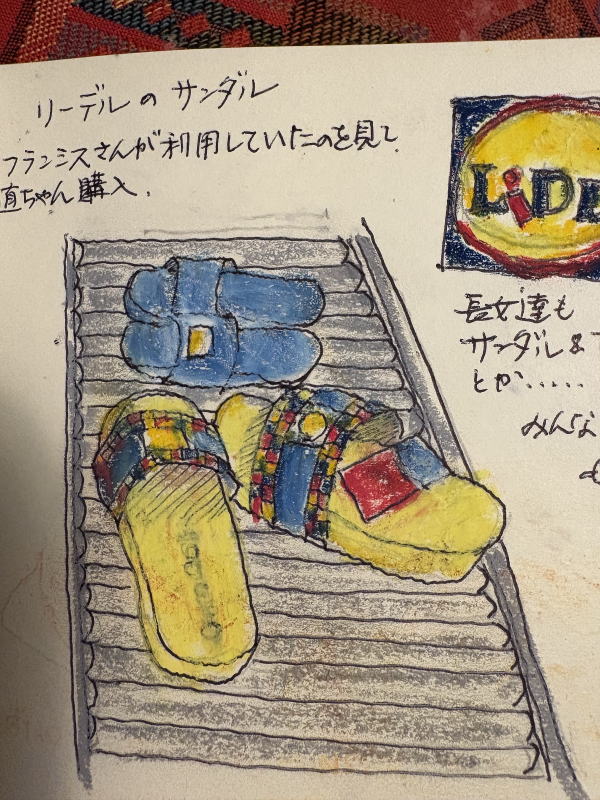 リーデルのサンダル
フランシスさんが利用していたのを見て、
直ちゃん購入.
LiDL
長女達も
サンダル&T
とか......
みんな